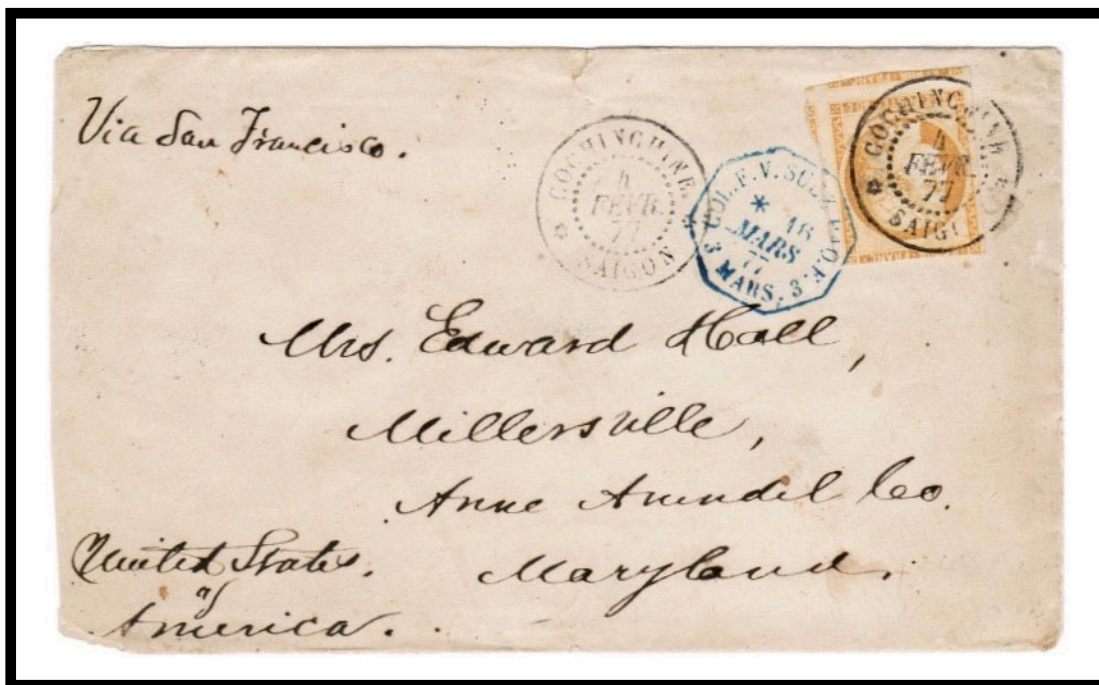 Via San Francisco.
COCHINCHINE
4
FEVR.
77
SAIGON
COL. F. V. SUEZ
* 16
MARS
77
3 MARS. 3
COCHINCHINE
4
FEVR.
77
SAIGO
Mrs. Edward Hall,
Millersville,
Anne Arundel Co.
Maryland.
United States.
of
America.